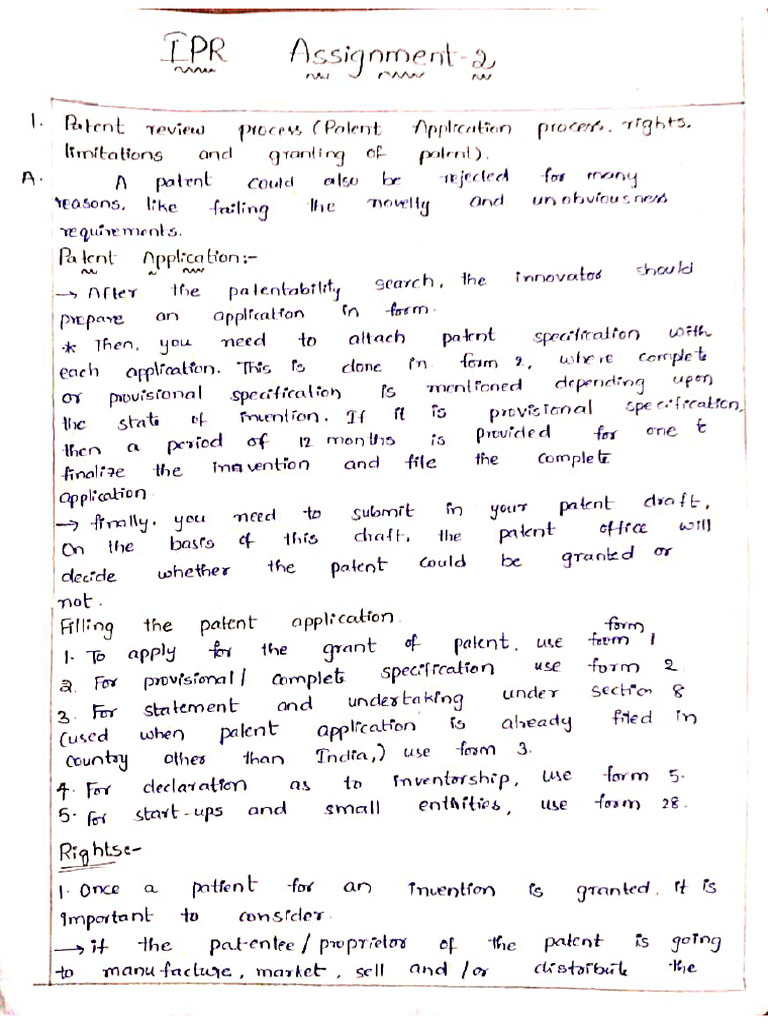 IPR Assignment-2
1. Patent review process (Patent Application process, rights,
limitations and granting of patent).
A. A patent could also be rejected for many
reasons, like failing the novelty and unobviousness
requirements.
Patent Application:-
→ After the patentability search, the innovator should
prepare an application in form.
* Then, you need to attach patent specification with
each application. This is done in form 2, where complete
or provisional specification is mentioned depending upon
the state of invention. If it is provisional specification,
then a period of 12 months is provided for one to
finalize the invention and file the complete
application.
→ finally, you need to submit in your patent draft,
On the basis of this draft, the patent office will
decide whether the patent could be granted or
not.
Filling the patent application.
1. To apply for the grant of patent, use form 1
2. For provisional/ complete specification use form 2
3. For statement and undertaking under section 8
(used when patent application is already filed in
country other than India,) use form 3.
4. For declaration as to inventorship, use form 5.
5. for start-ups and small enthities, use form 28.
Rights:-
1. Once a patient for an invention is granted, it is
important to consider.
→ if the patentee/proprietor of the patent is going
to manufacture, market, sell and /or distribute the